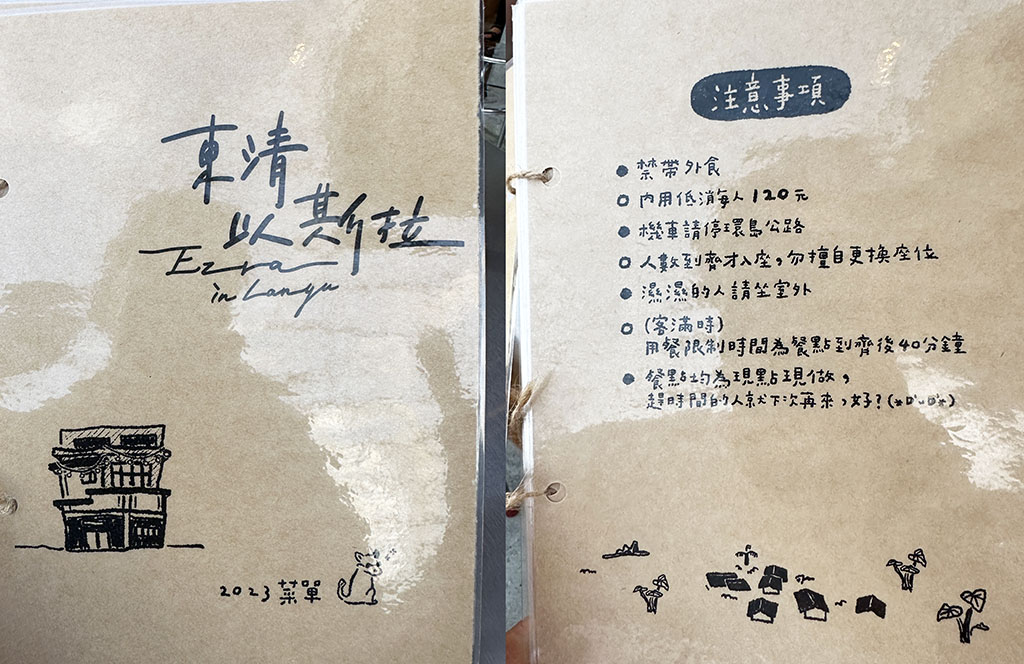 東清
以斯拉
Ezra
in Lanyu
2023 菜單
注意事項
禁帶外食
內用低消每人120元
機車請停環島公路
人數到齊才入座,勿擅自更換座位
濕濕的人請坐室外
(客滿時)
用餐限制時間為餐點到齊後40分鐘
餐點均為現點現做,
趕時間的人就下次再來,好?